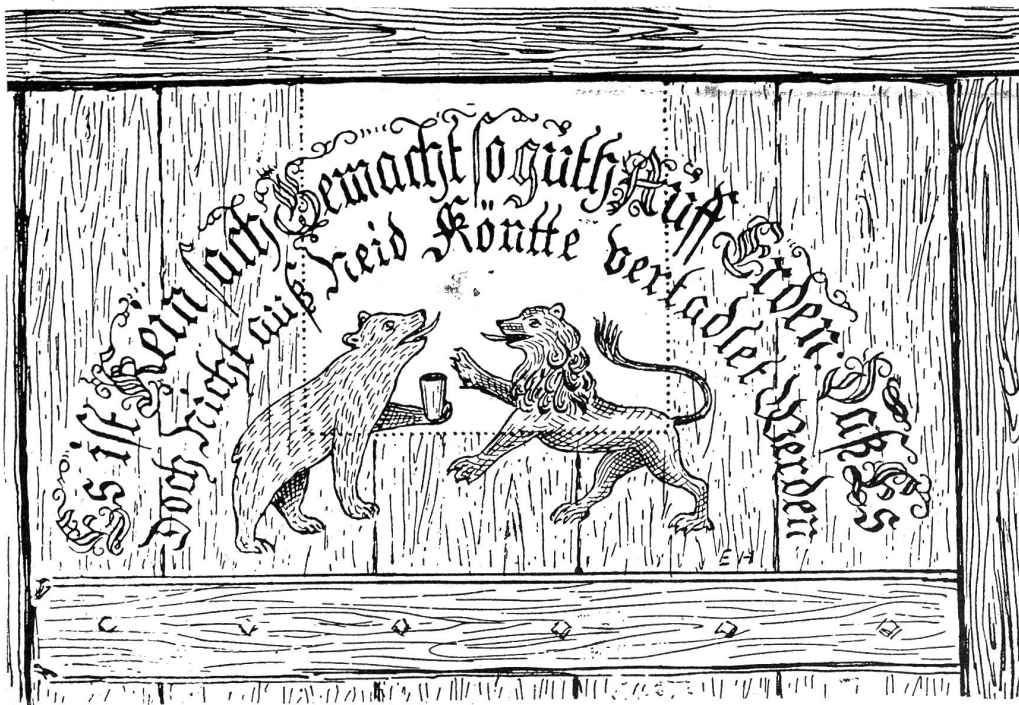 Es ist Kein sach Gemacht so guth Auff Erden. Daß Es
Doch Nicht auß Neid Köntte vertadlet Werden
E H